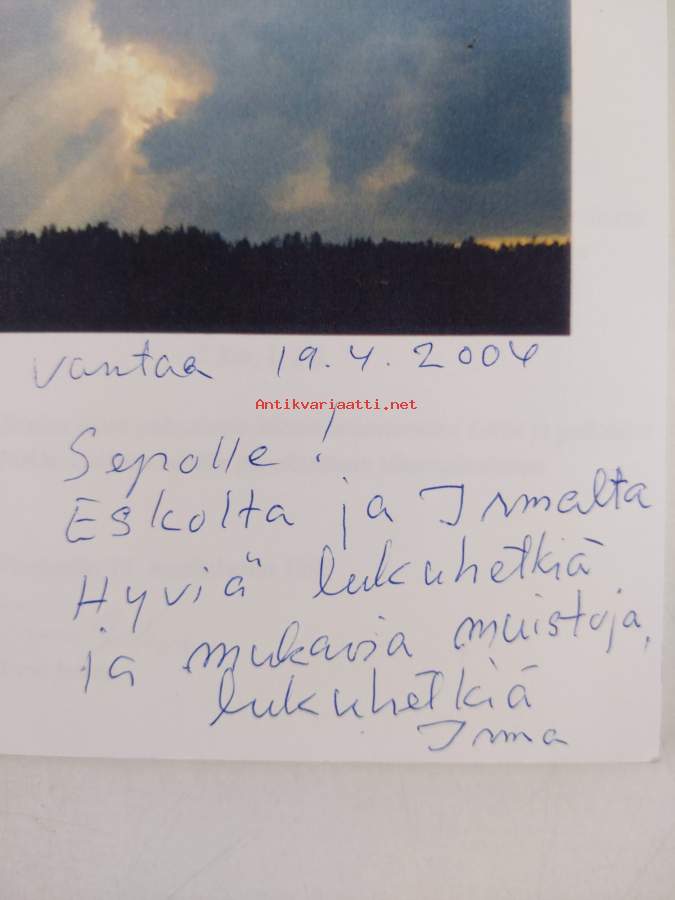 Vantaa 19.4.2004
Antikvariaatti.net
Sepolle!
Eskolta ja Irmalta
Hyviä lukuhetkiä
ja mukavia muistoja,
lukuhetkiä
Irma